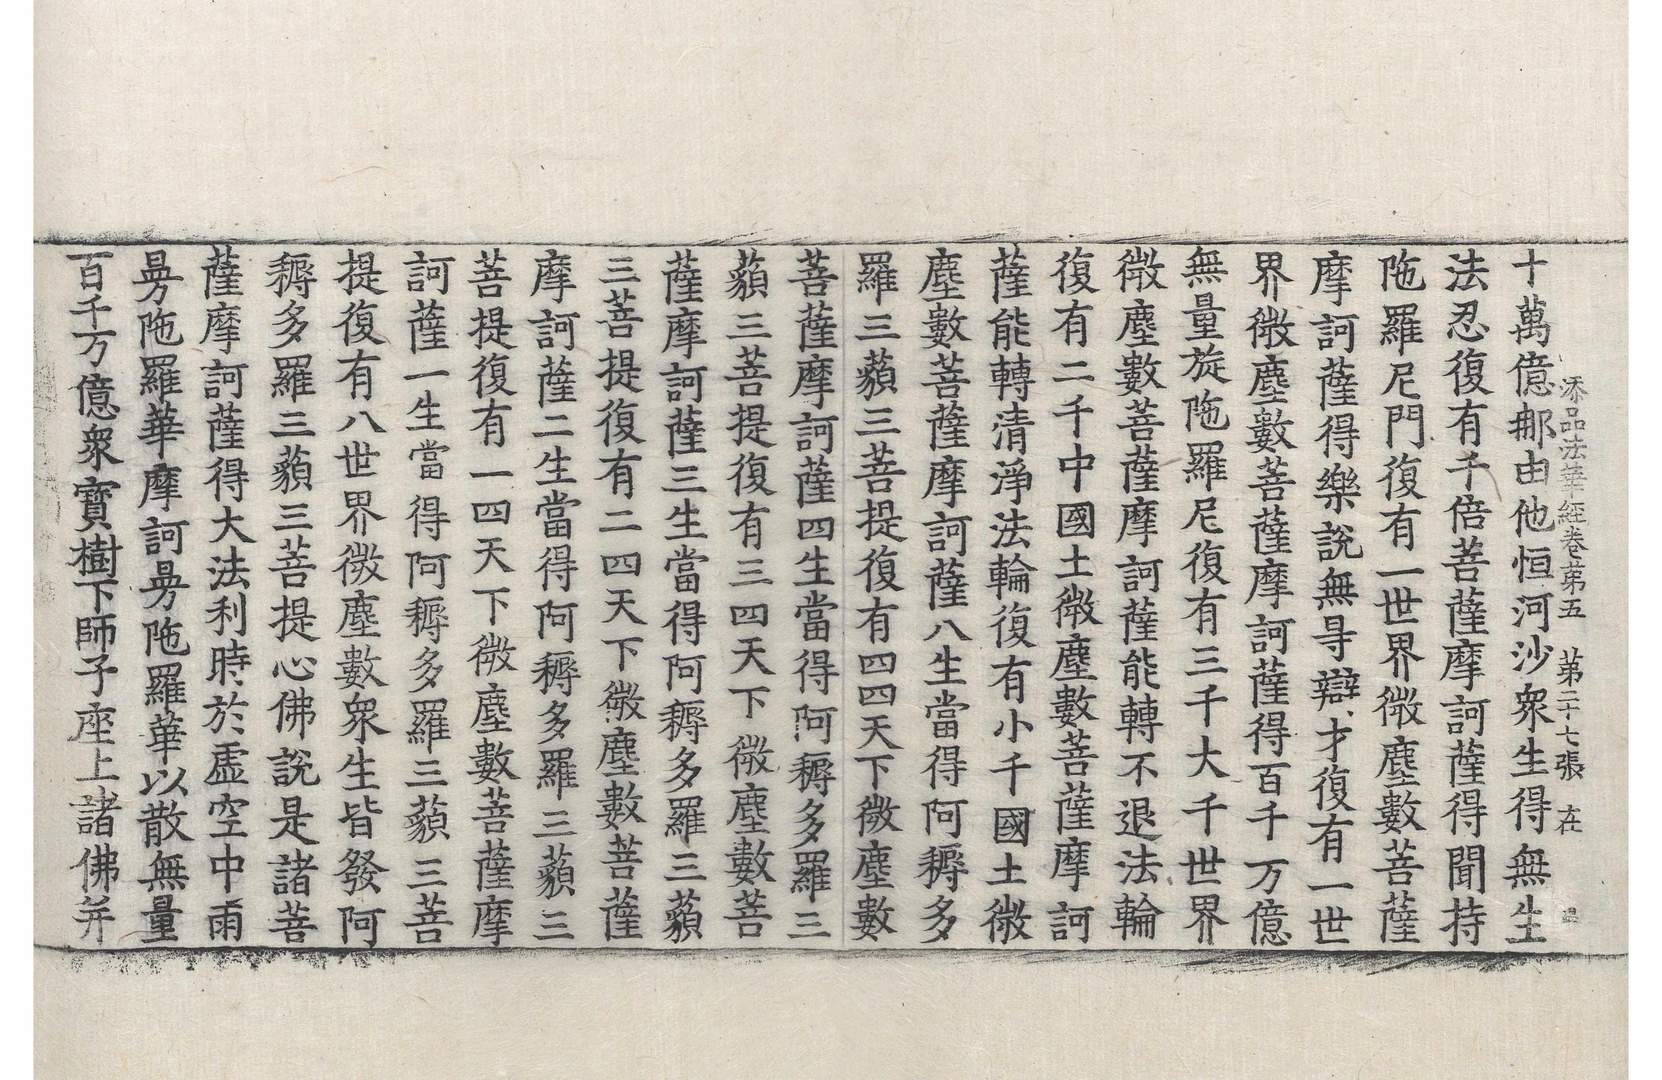 添品法華經卷苐五 苐二十七張 在
十萬億𨚗由他恒河沙衆生得無生
法忍復有千倍菩薩摩訶薩得聞持
陁羅尼門復有一世界微塵數菩薩
摩訶薩得樂說無㝵辯才復有一世
界微塵數菩薩摩訶薩得百千万億
無量旋陁羅尼復有三千大千世界
微塵數菩薩摩訶薩能轉不退法輪
復有二千中國土微塵數菩薩摩訶
薩能轉清淨法輪復有小千國土微
塵數菩薩摩訶薩八生當得阿耨多
羅三藐三菩提復有四四天下微塵數
菩薩摩訶薩四生當得阿耨多羅三
藐三菩提復有三四天下微塵數菩
薩摩訶薩三生當得阿耨多羅三藐
三菩提復有二四天下微塵數菩薩
摩訶薩二生當得阿耨多羅三藐三
菩提復有一四天下微塵數菩薩摩
訶薩一生當得阿耨多羅三藐三菩
提復有八世界微塵數衆生皆發阿
耨多羅三藐三菩提心佛說是諸菩
薩摩訶薩得大法利時於虛空中雨
㫶陁羅華摩訶㫶陁羅華以散無量
百千万億衆寶樹下師子座上諸佛并